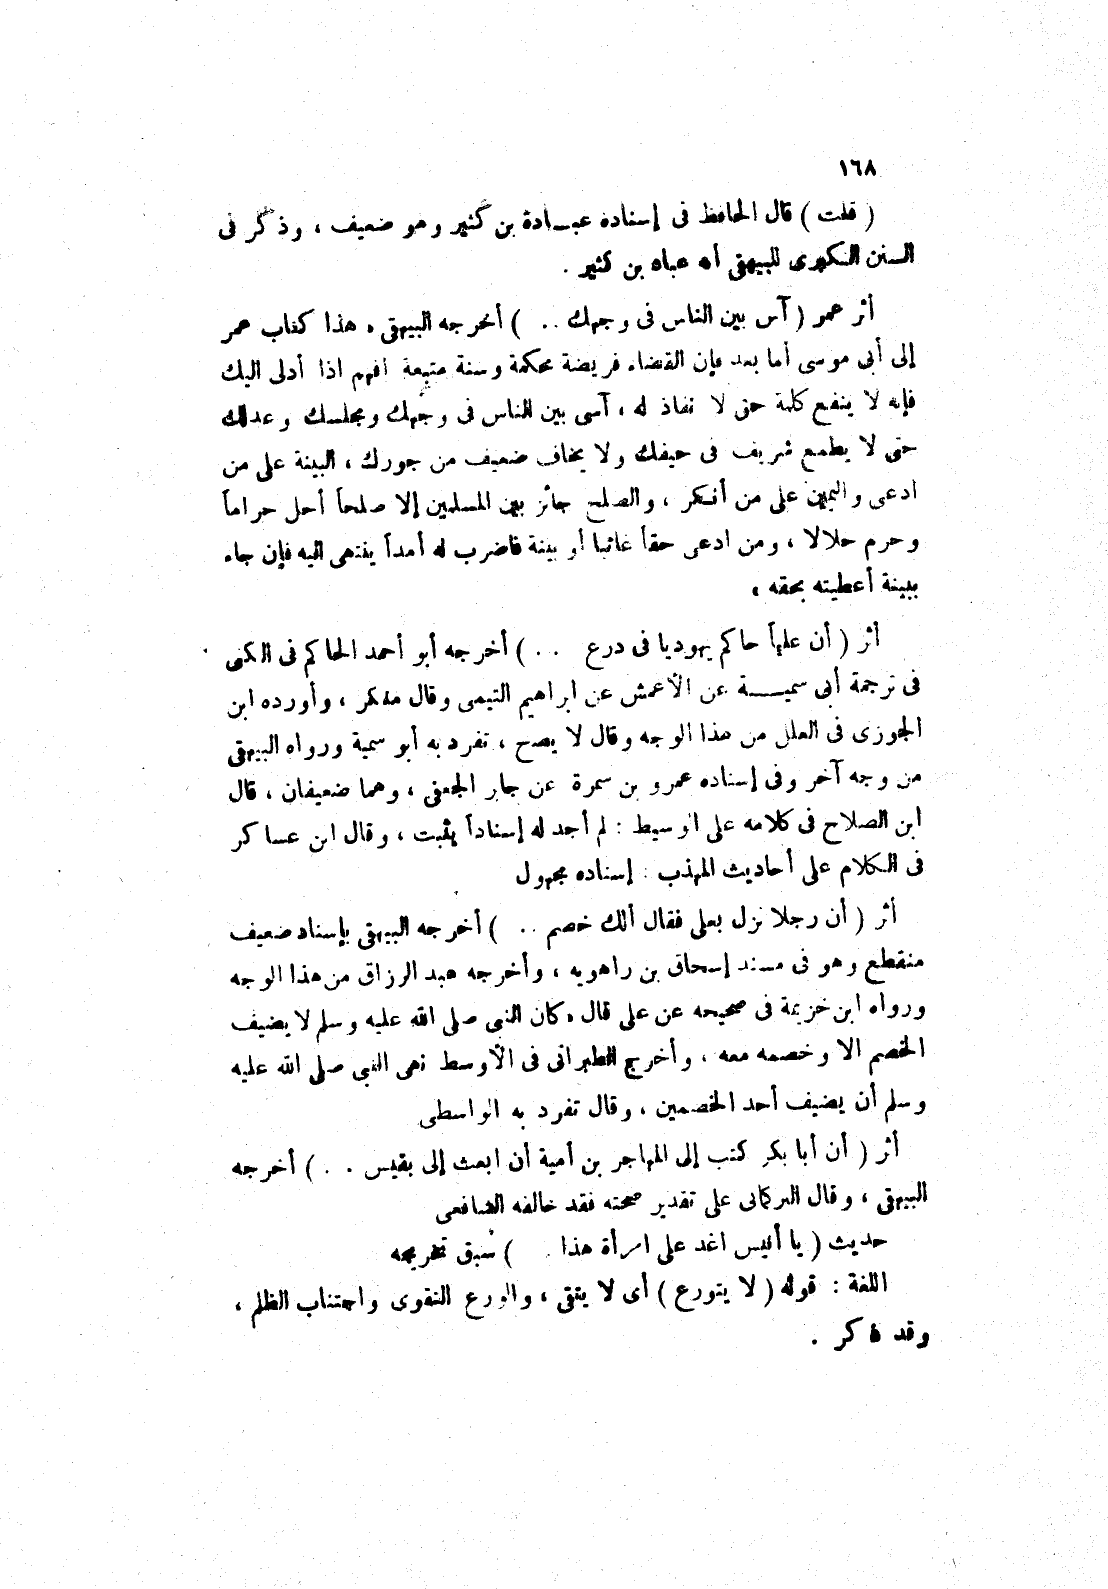 ١٦٨
( قلت ) قال الحافظ فى إسناده عبـادة بن كثير وهو ضعيف ، وذكر فى
السنن الكبرى للبيهقى أنه عباد بن كثير .
أثر عمر ( آس بين الناس فى وجهك .. ) أخرجه البيهقى ، هذا كتاب عمر
إلى أبى موسى أما بعد فإن القضاء فريضة محكمة وسنة متبعة افهم اذا أدلى اليك
فإنه لا ينفع كلمة حق لا نفاذ له ، آسى بين الناس فى وجهك ومجلسك وعدلك
حتى لا يطمع شريف فى حيفك ولا يخاف ضعيف من جورك ، البينة على من
ادعى واليمين على من أنكر ، والصلح جائز بين المسلمين إلا صلحاً أحل حراماً
وحرم حلالا ، ومن ادعى حقاً غائبا أو بينة فاضرب له أمداً ينتهى اليه فإن جاء
ببينة أعطيته بحقه ،
أثر ( أن علياً حاكم يهوديا فى درع .. ) أخرجه أبو أحمد الحاكم فى الكنى
فى ترجمة أبى سميـــة عن الأعمش عن ابراهيم التيمى وقال منكر ، وأورده ابن
الجوزى فى العلل من هذا الوجه وقال لا يصح ، تفرد به أبو سمية ورواه البيهقى
من وجه آخر وفى إسناده عمرو بن سمرة عن جابر الجعفى ، وهما ضعيفان ، قال
ابن الصلاح فى كلامه على الوسيط : لم أجد له إسناداً يثبت ، وقال ابن عساكر
فى الكلام على أحاديث المهذب : إسناده مجهول
أثر ( أن رجلا نزل بعلى فقال ألك خصم .. ) أخرجه البيهقى بإسناد ضعيف
منقطع وهو فى مسند إسحاق بن راهويه ، وأخرجه عبد الرزاق من هذا الوجه
ورواه ابن خزيمة فى صحيحه عن على قال ، كان النبى صلى الله عليه وسلم لا يضيف
الخصم الا وخصمه معه ، وأخرج الطبرانى فى الأوسط نهى النبى صلى الله عليه
وسلم أن يضيف أحد الخصمين ، وقال تفرد به الواسطى
أثر ( أن أبا بكر كتب إلى المهاجر بن أمية أن ابعث إلى بقيس . . ) أخرجه
البيهقى ، وقال التركمانى على تقدير صحته فقد خالفه الشافعى
حديث ( يا أنيس اغد على امرأة هذا . ) سبق تخريجه
اللغة : قوله ( لا يتورع ) أى لا يتقى ، والورع التقوى واجتناب الظلم ،
وقد ذكر .